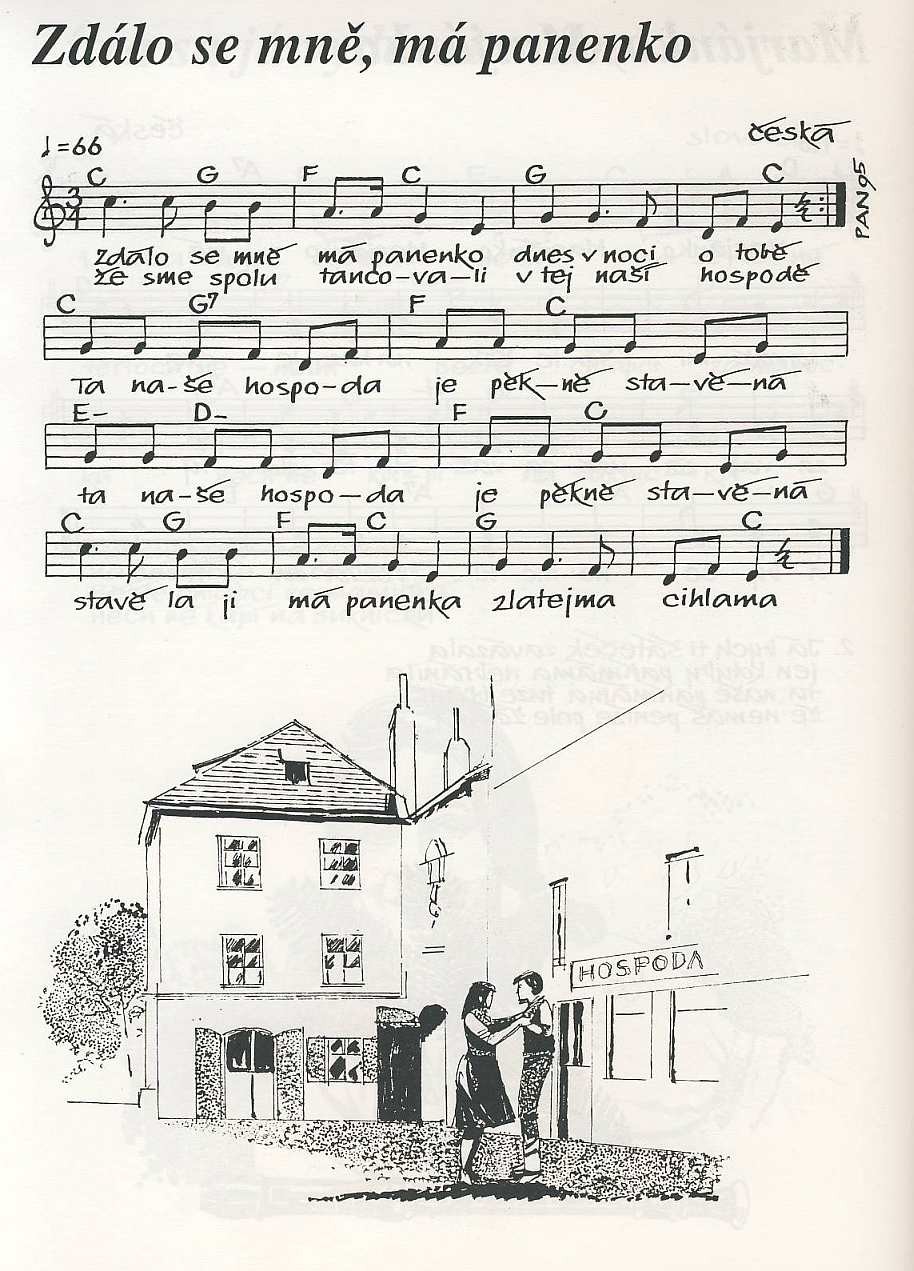 Zdálo se mně, má panenko
♩=66
česká
PAN 95
C G F C G C
Zdálo se mně má panenko dnes v noci o tobě
že sme spolu tanco-va-li v tej naší hospodě
C G7 F C
Ta na-še hospo-da je pěk-ně sta-vě-ná
E- D- F C
ta na-še hospo-da je pěkně sta-vě-ná
C G F C G C
stavě la ji má panenka zlatejma cihlama
HOSPODA